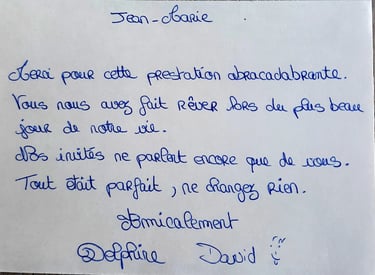 Jean-Marie
Merci pour cette prestation abracadabrante.
Vous nous avez fait rêver lors du plus beau
jour de notre vie.
Nos invités ne parlent encore que de vous.
Tout était parfait, ne changez rien.
Amicalement
Delphine David